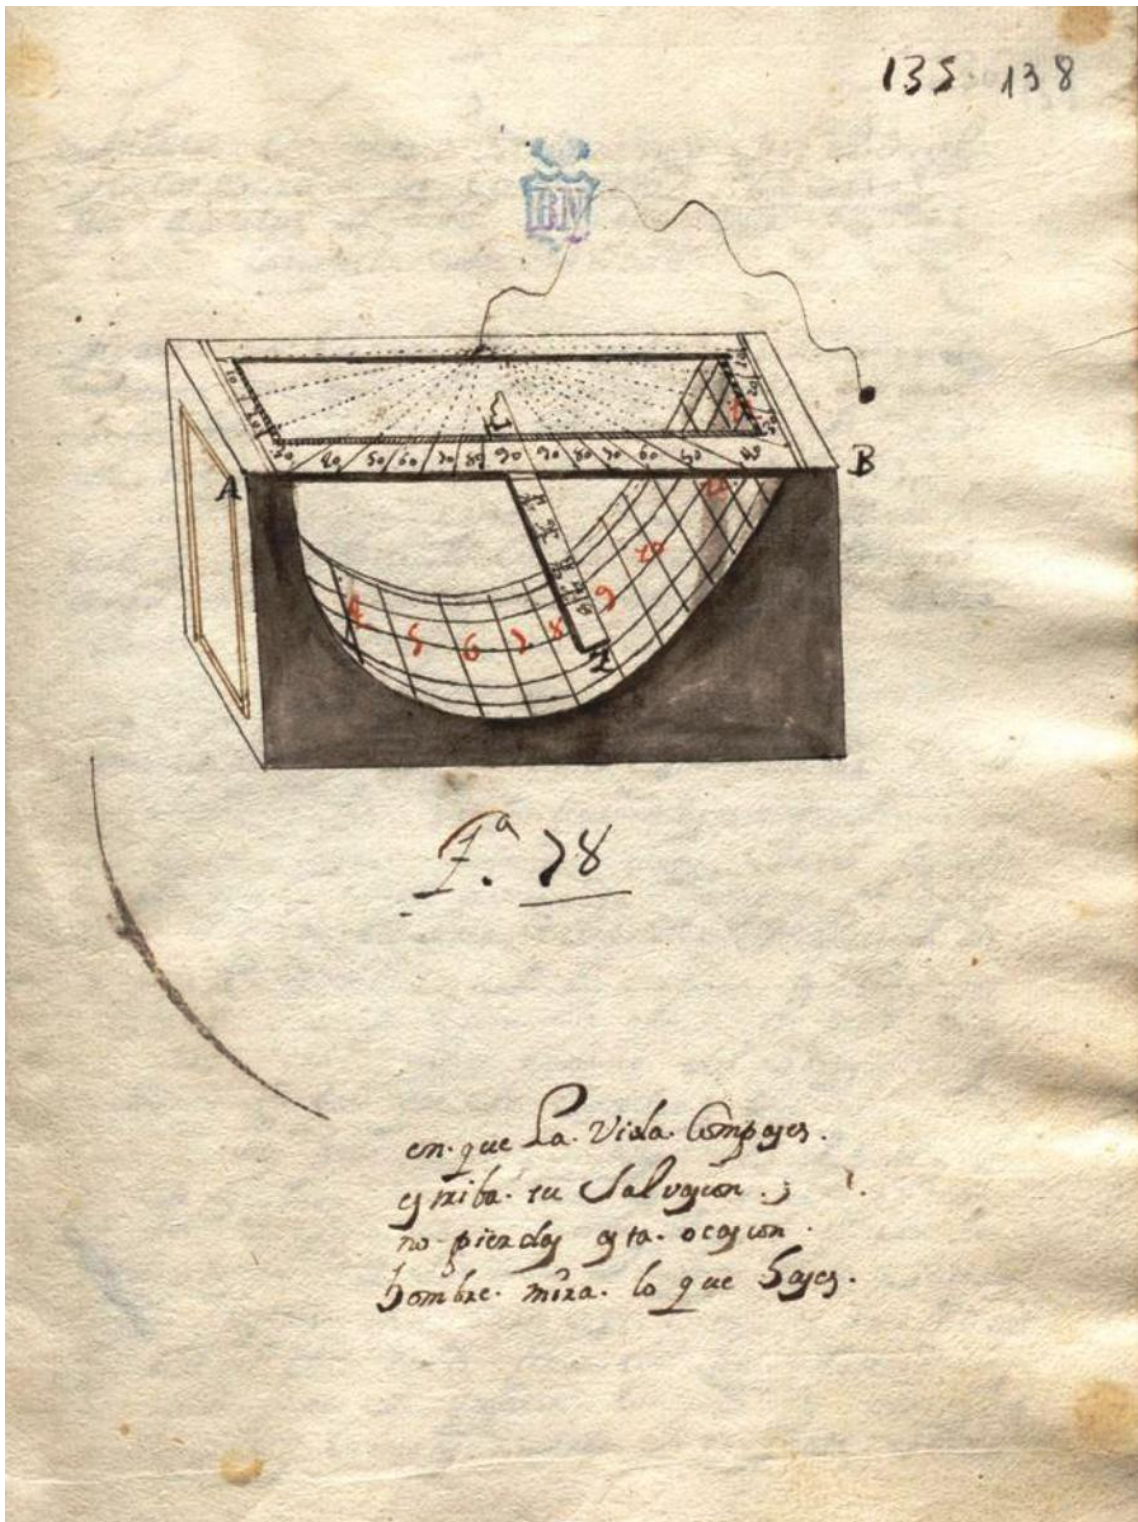 135 138
BN
10 20 30 40 50 60 70 80 90 90 80 70 60 50 40 30 20 10
A B
4 5 6 7 8 9 10 11 12
Z
F.ª 78
en. que La. Vida. Compases.
estriba. tu Salvasion.
no pierdas esta. ocasion.
hombre. mira. lo que hases.